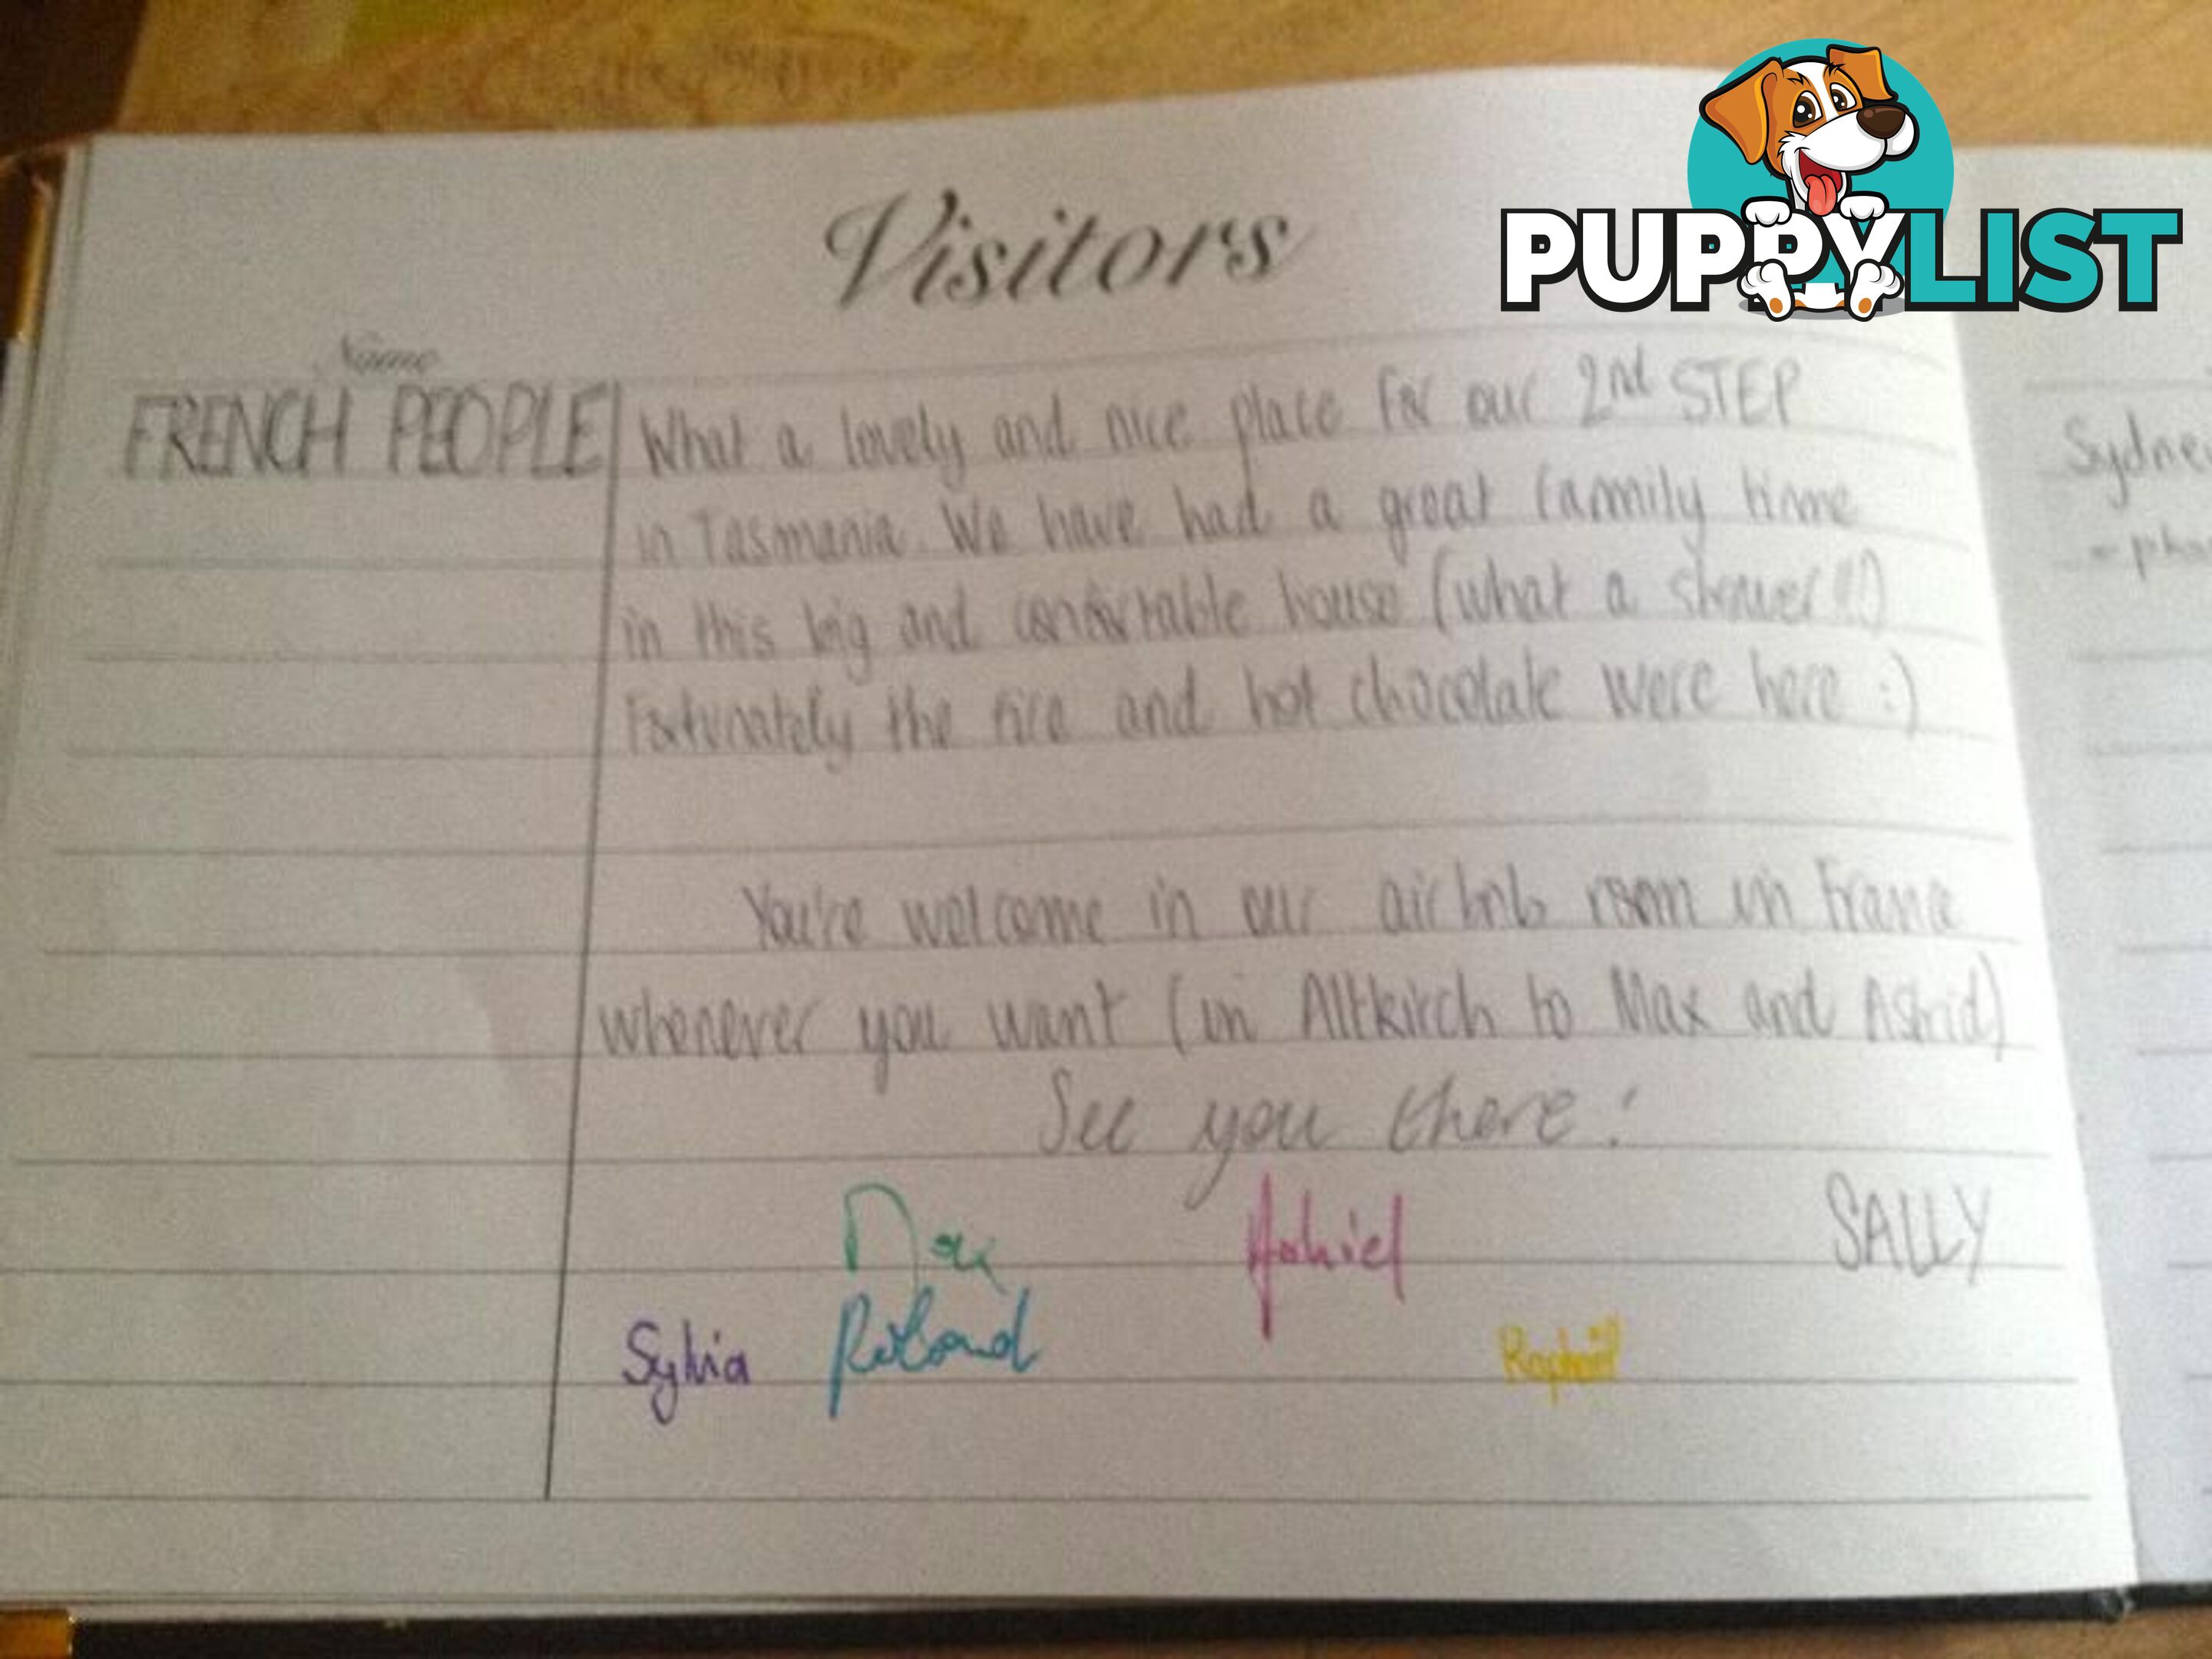 PUPPYLIST
Visitors
Name
FRENCH PEOPLE
What a lovely and nice place for our 2nd STEP
in Tasmania. We have had a great family time
in this big and confortable house (what a shower!!)
Fortunately the fire and hot chocolate were here :)
You're welcome in our airbnb room in France
whenever you want (in Altkirch to Max and Astrid)
See you there!
Max
SALLY
Sylvia Roland
Raphaël
Sydne